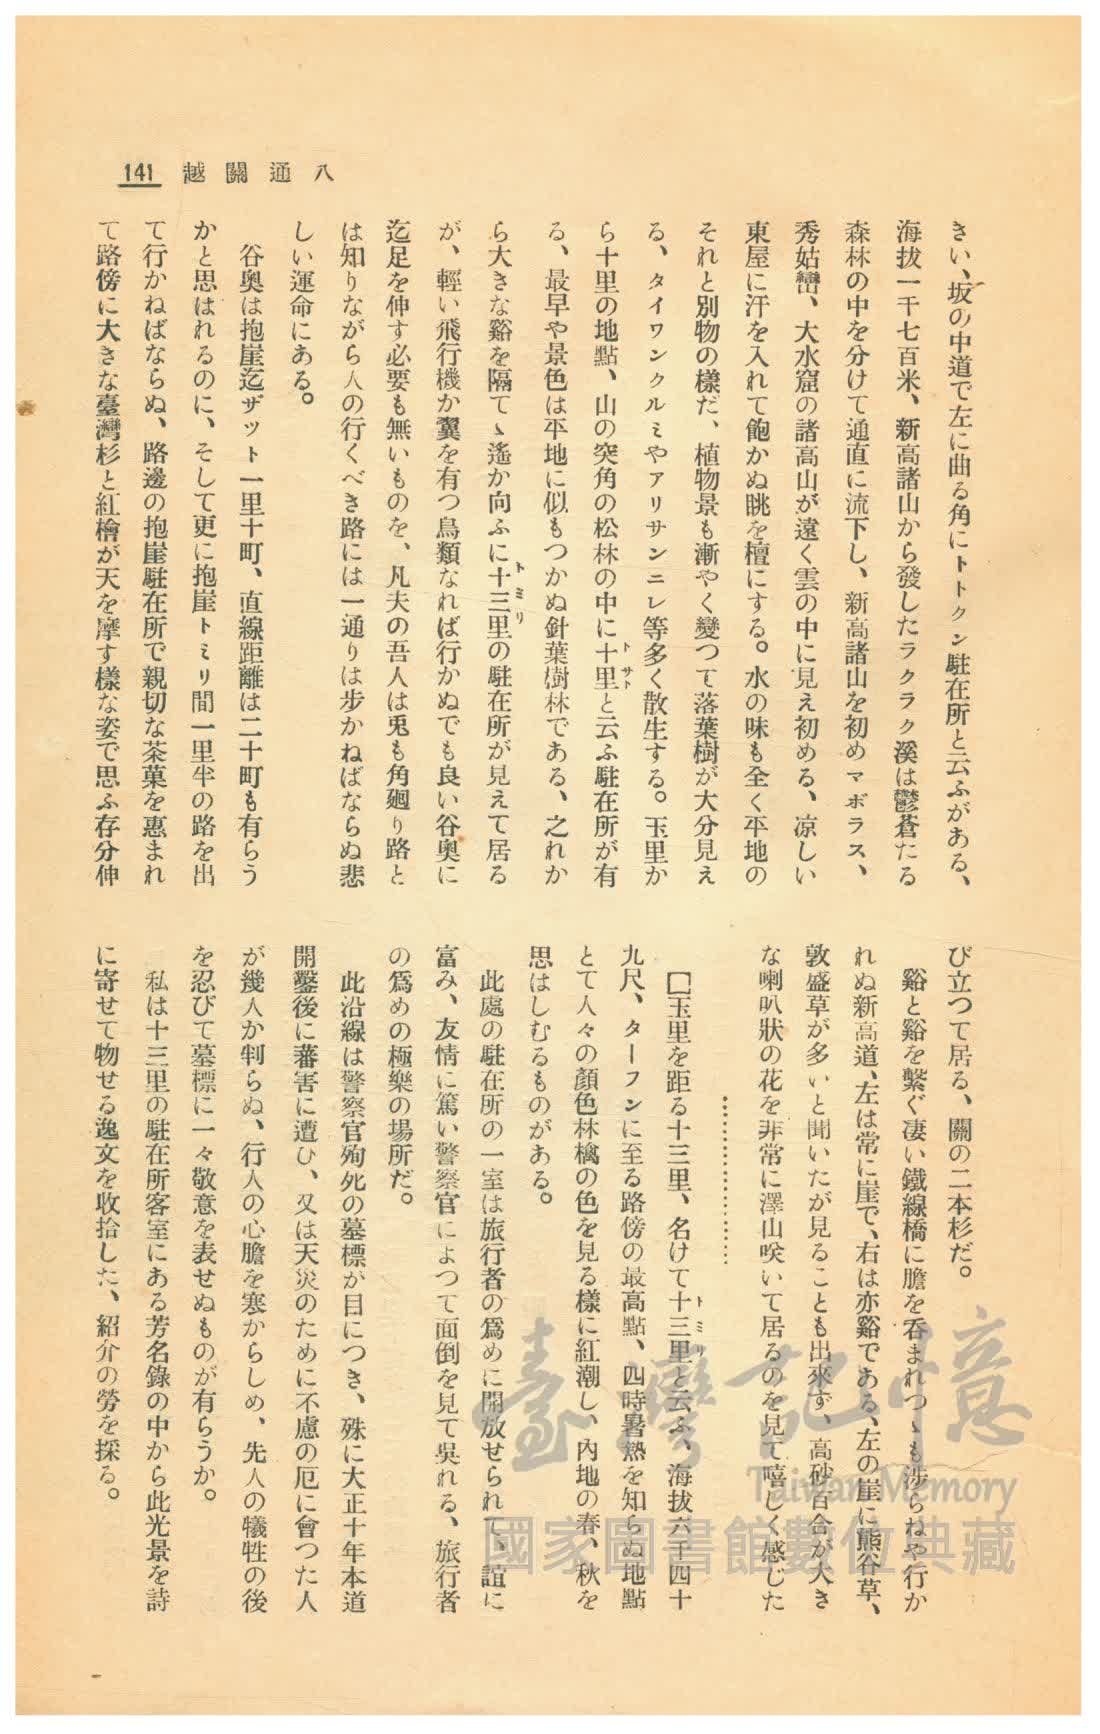 八通關越 141
きい、坂の中道で左に曲る角にトトクン駐在所と云ふがある、
海拔一千七百米、新高諸山から發したラクラク溪は鬱蒼たる
森林の中を分けて通直に流下し、新高諸山を初めマボラス、
秀姑巒、大水窟の諸高山が遠く雲の中に見え初める、凉しい
東屋に汗を入れて飽かぬ眺を檀にする。水の味も全く平地の
それと別物の樣だ、植物景も漸やく變つて落葉樹が大分見え
る、タイワンクルミやアリサンニレ等多く散生する。玉里か
ら十里の地點、山の突角の松林の中に十里と云ふ駐在所が有
トサト
る、最早や景色は平地に似もつかぬ針葉樹林である、之れか
ら大きな谿を隔てゝ遙か向ふに十三里の駐在所が見えて居る
トミリ
が、輕い飛行機か翼を有つ鳥類なれば行かぬでも良い谷奧に
迄足を伸す必要も無いものを、凡夫の吾人は兎も角廻り路と
は知りながら人の行くべき路には一通りは步かねばならぬ悲
しい運命にある。
谷奧は抱崖迄ザット一里十町、直線距離は二十町も有らう
かと思はれるのに、そして更に抱崖トミリ間一里半の路を出
て行かねばならぬ、路邊の抱崖駐在所で親切な茶菓を惠まれ
て路傍に大きな臺灣杉と紅檜が天を摩す樣な姿で思ふ存分伸
び立つて居る、關の二本杉だ。
谿と谿を繫ぐ凄い鐵線橋に膽を呑まれつゝも涉らねや行か
れぬ新高道、左は常に崖で、右は亦谿である、左の崖に熊谷草、
敦盛草が多いと聞いたが見ることも出來ず、高砂百合が大き
な喇叭狀の花を非常に澤山咲いて居るのを見て嬉しく感じた
………………
□玉里を距る十三里、名けて十三里と云ふ、海拔六千四十
トミリ
九尺、ターフンに至る路傍の最高點、四時暑熱を知らぬ地點
とて人々の顏色林檎の色を見る樣に紅潮し、內地の春、秋を
思はしむるものがある。
此處の駐在所の一室は旅行者の爲めに開放せられて、誼に
富み、友情に篤い警察官によつて面倒を見て吳れる、旅行者
の爲めの極樂の場所だ。
此沿線は警察官殉死の墓標が目につき、殊に大正十年本道
開鑿後に蕃害に遭ひ、又は天災のために不慮の厄に會つた人
が幾人か判らぬ、行人の心膽を寒からしめ、先人の犧牲の後
を忍びて墓標に一々敬意を表せぬものが有らうか。
私は十三里の駐在所客室にある芳名錄の中から此光景を詩
に寄せて物せる逸文を收拾した、紹介の勞を採る。
臺灣記憶
Taiwan Memory
國家圖書館數位典藏